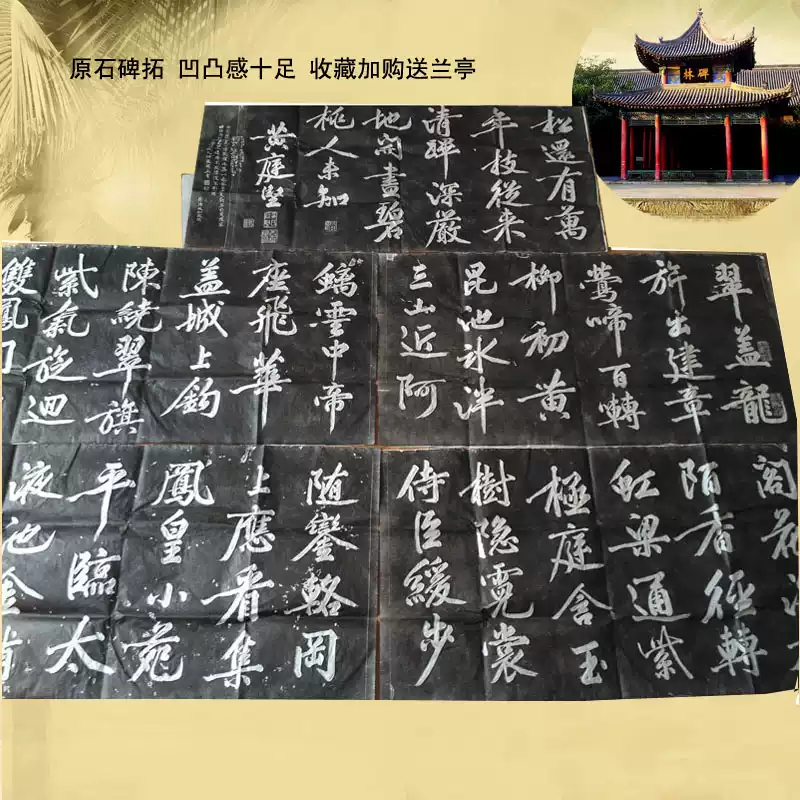 原石碑拓 凹凸感十足 收藏加购送兰亭
碑林
翠盖龍
旂出建章
鶯啼百轉
柳初黄
昆池氷泮
三山近阿
閣花
陌香徑轉
虹梁通紫
極庭含玉
樹隐霓裳
侍臣緩步
随鑾輅岡
上應看集
鳳皇小苑
平臨太
液池金
雲中帝
座飛華
盖城上鈎
陳繞翠旗
紫氣旋迴
雙鳳
松還有萬
年枝從來
清蹕深嚴
地開盡碧
桃人未知
黄庭堅